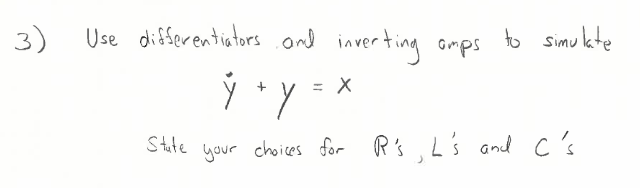 3) Use differentiators and inverting amps to simulate
ẏ + y = x
State your choices for R's, L's and C's